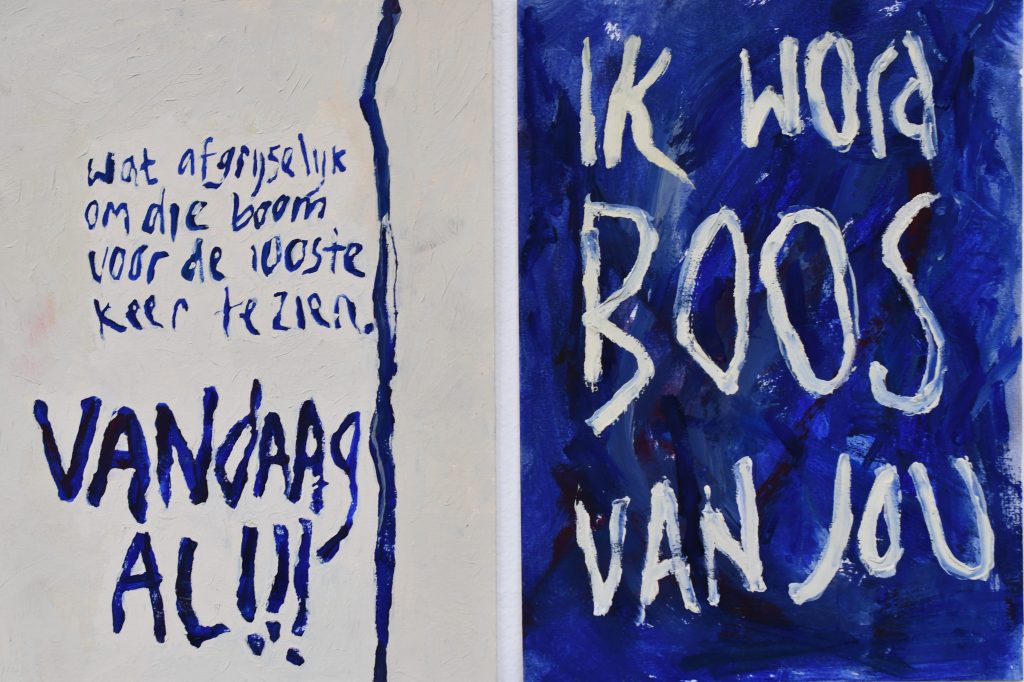 wat afgrijselijk
om die boom
voor de 100ste
keer te zien.
VANdAAg
AL!!!
IK WORd
BOOS
VAN JOU